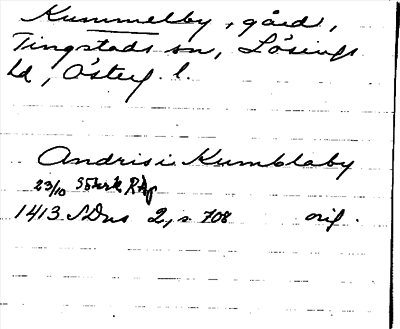 Kummelby, gård,
Tingstads sn, Lösings
hd, Österg. l.
Andris i Kumblaby
23/10
1413 SDns 2, s 708 orig.